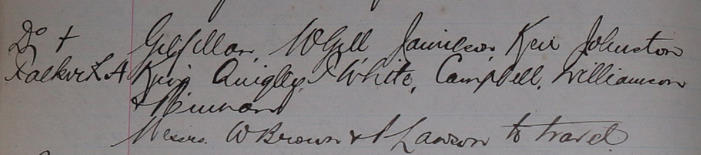 Do + Gilfillan, McGill Jamieson Keir Johnston
Falkirk A King Quigley, J White, Campbell, Williamson
& Kinnard
Messrs W Brown & A Lawson to travel